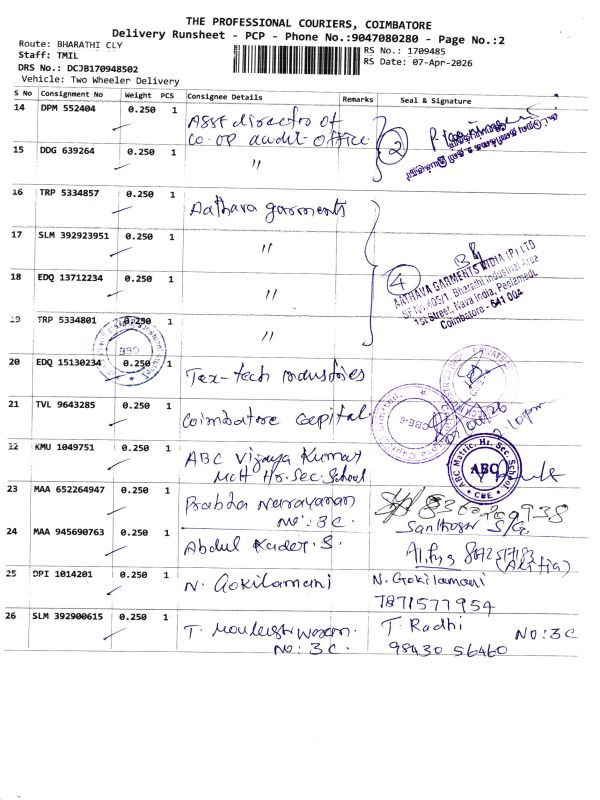 THE PROFESSIONAL COURIERS, COIMBATORE
Delivery Runsheet - PCP - Phone No.:9047080280 - Page No.:2
Route: BHARATHI CLY
RS No.: 1709485
Staff: TMIL
RS Date: 07-Apr-2026
DRS No.: DCJB170948502
Vehicle: Two Wheeler Delivery
S No Consignment No Weight PCS Consignee Details Remarks Seal & Signature
14 DPM 552404 0.250 1 Asst director of
Co.op audit-office
2
15 DDG 639264 0.250 1 "
16 TRP 5334857 0.250 1 Aathava garments
17 SLM 392923951 0.250 1 "
18 EDQ 13712234 0.250 1 "
4
AATHAVA GARMENTS INDIA (P) LTD
SF No.405/1, Bharathi Industrial Area
1st Street, Nava India, Peelamedu,
Coimbatore - 641 004
19 TRP 5334801 0.250 1 "
CBE
20 EDQ 15130234 0.250 1 Tex-tech industries
CBE
21 TVL 9643285 0.250 1 Coimbatore capital.
CBE-6
22 KMU 1049751 0.250 1 ABC Vijaya Kumar
Mct Hr.Sec.School
ABC Matric. Hr. Sec. School
ABC
* CBE *
23 MAA 652264947 0.250 1 Prabha Narayanan
No: 3C.
24 MAA 945690763 0.250 1 Abdul Kader. S.
25 DPI 1014201 0.250 1 N. Gokilamani
N. Gokilamani
7871577954
26 SLM 392900615 0.250 1 T.
No: 3C.
T. Radhi
No: 3C
98430 56460